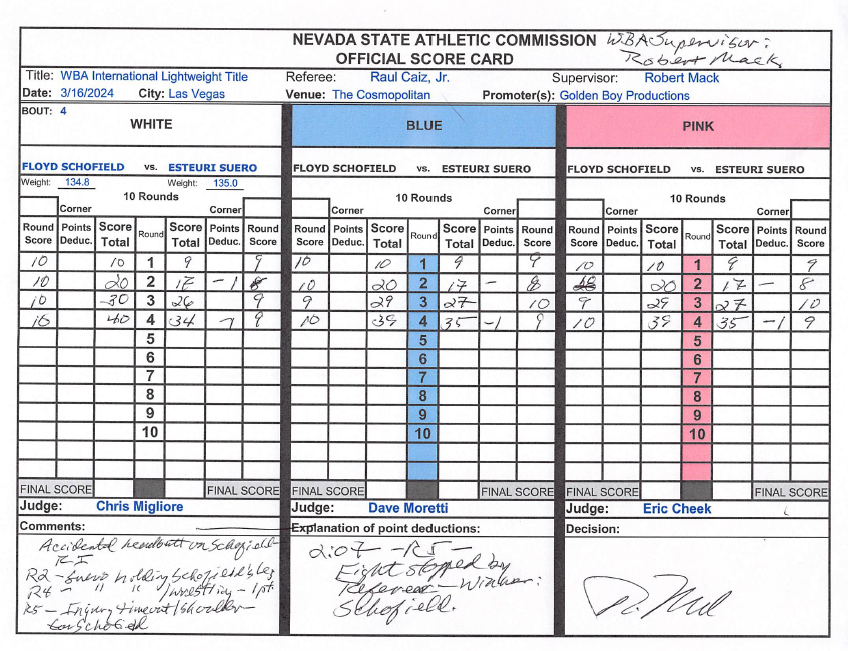 NEVADA STATE ATHLETIC COMMISSION WBA Supervisor:
OFFICIAL SCORE CARD Robert Mack
Title: WBA International Lightweight Title Referee: Raul Caiz, Jr. Supervisor: Robert Mack
Date: 3/16/2024 City: Las Vegas Venue: The Cosmopolitan Promoter(s): Golden Boy Productions
BOUT: 4
WHITE BLUE PINK
FLOYD SCHOFIELD vs. ESTEURI SUERO FLOYD SCHOFIELD vs. ESTEURI SUERO FLOYD SCHOFIELD vs. ESTEURI SUERO
Weight: 134.8 Weight: 135.0
10 Rounds 10 Rounds 10 Rounds
Corner Corner Corner Corner Corner Corner
Round Points Score Round Score Points Round Round Points Score Round Score Points Round Round Points Score Round Score Points Round
Score Deduc. Total Total Deduc. Score Score Deduc. Total Total Deduc. Score Score Deduc. Total Total Deduc. Score
10 10 1 9 9 10 10 1 9 9 10 10 1 9 9
10 20 2 17 -1 8 10 20 2 17 - 8 20 2 17 - 8
10 30 3 26 9 9 29 3 27 10 9 29 3 27 10
10 40 4 34 -1 9 10 39 4 35 -1 9 10 39 4 35 -1 9
5 5 5
6 6 6
7 7 7
8 8 8
9 9 9
10 10 10
FINAL SCORE FINAL SCORE FINAL SCORE FINAL SCORE FINAL SCORE FINAL SCORE
Judge: Chris Migliore Judge: Dave Moretti Judge: Eric Cheek
Comments: Explanation of point deductions: Decision:
Accidental headbutt on Schofield
R-I
R2 - Suero holding Schofield's leg
R4 - " " " /wrestling - 1pt.
R5 - Injury timeout/shoulder
for Schofield
2:07 - R5 -
Fight stopped by
Referee - Winner:
Schofield.